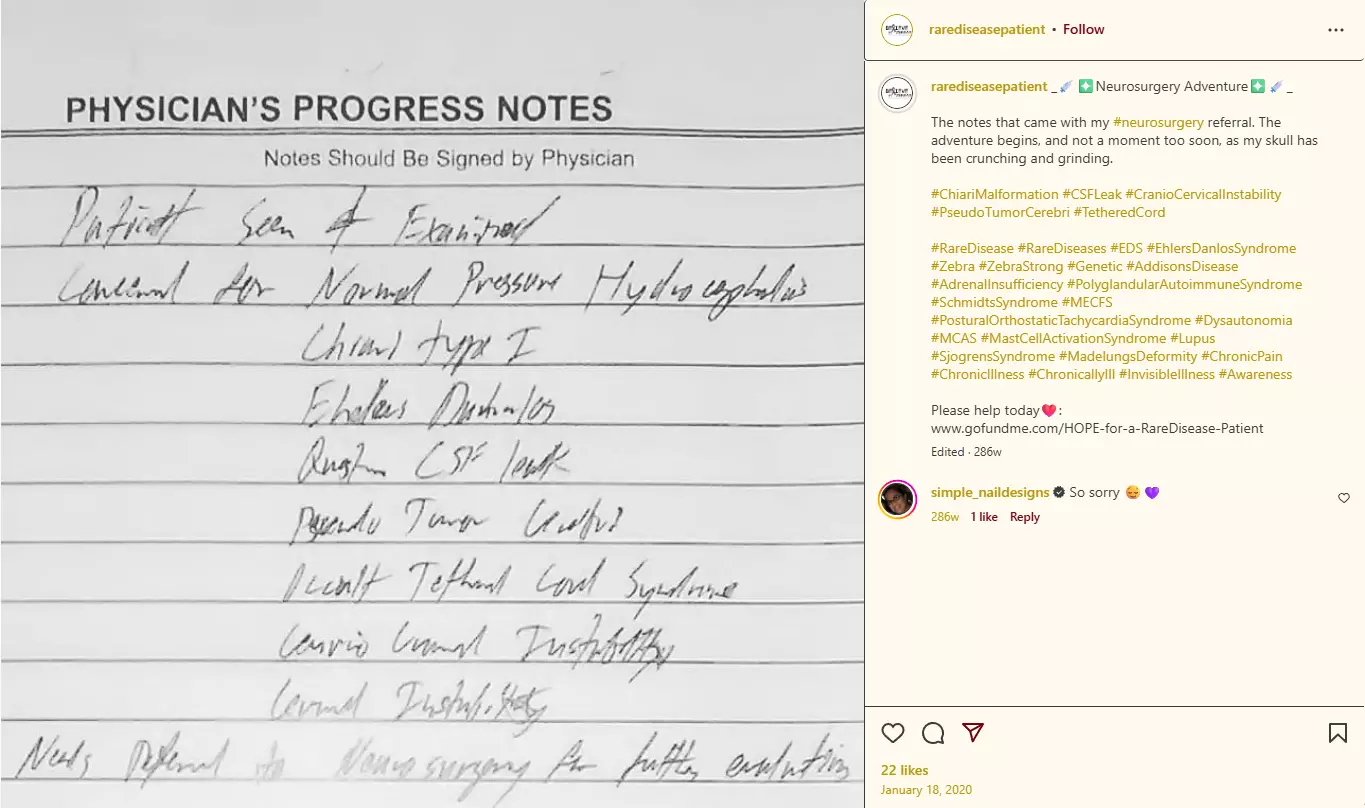 PHYSICIAN'S PROGRESS NOTES
Notes Should Be Signed by Physician
Patient Seen & Examined
Concern for Normal Pressure Hydrocephalus
Chiari type I
Ehlers Danlos
Question CSF leak
Pseudo Tumor Cerebri
Occult Tethered Cord Syndrome
Cranio Cervical Instability
Cervical Instability
Needs Referral to Neurosurgery for further evaluation
rarediseasepatient • Follow
rarediseasepatient _ Neurosurgery Adventure _
The notes that came with my #neurosurgery referral. The
adventure begins, and not a moment too soon, as my skull has
been crunching and grinding.
#ChiariMalformation #CSFLeak #CranioCervicalInstability
#PseudoTumorCerebri #TetheredCord
#RareDisease #RareDiseases #EDS #EhlersDanlosSyndrome
#Zebra #ZebraStrong #Genetic #AddisonsDisease
#AdrenalInsufficiency #PolyglandularAutoimmuneSyndrome
#SchmidtsSyndrome #MECFS
#PosturalOrthostaticTachycardiaSyndrome #Dysautonomia
#MCAS #MastCellActivationSyndrome #Lupus
#SjogrensSyndrome #MadelungsDeformity #ChronicPain
#ChronicIllness #ChronicallyIll #InvisibleIllness #Awareness
Please help today❤️:
www.gofundme.com/HOPE-for-a-RareDisease-Patient
Edited · 286w
simple_naildesigns So sorry 😔 💜
286w 1 like Reply
22 likes
January 18, 2020